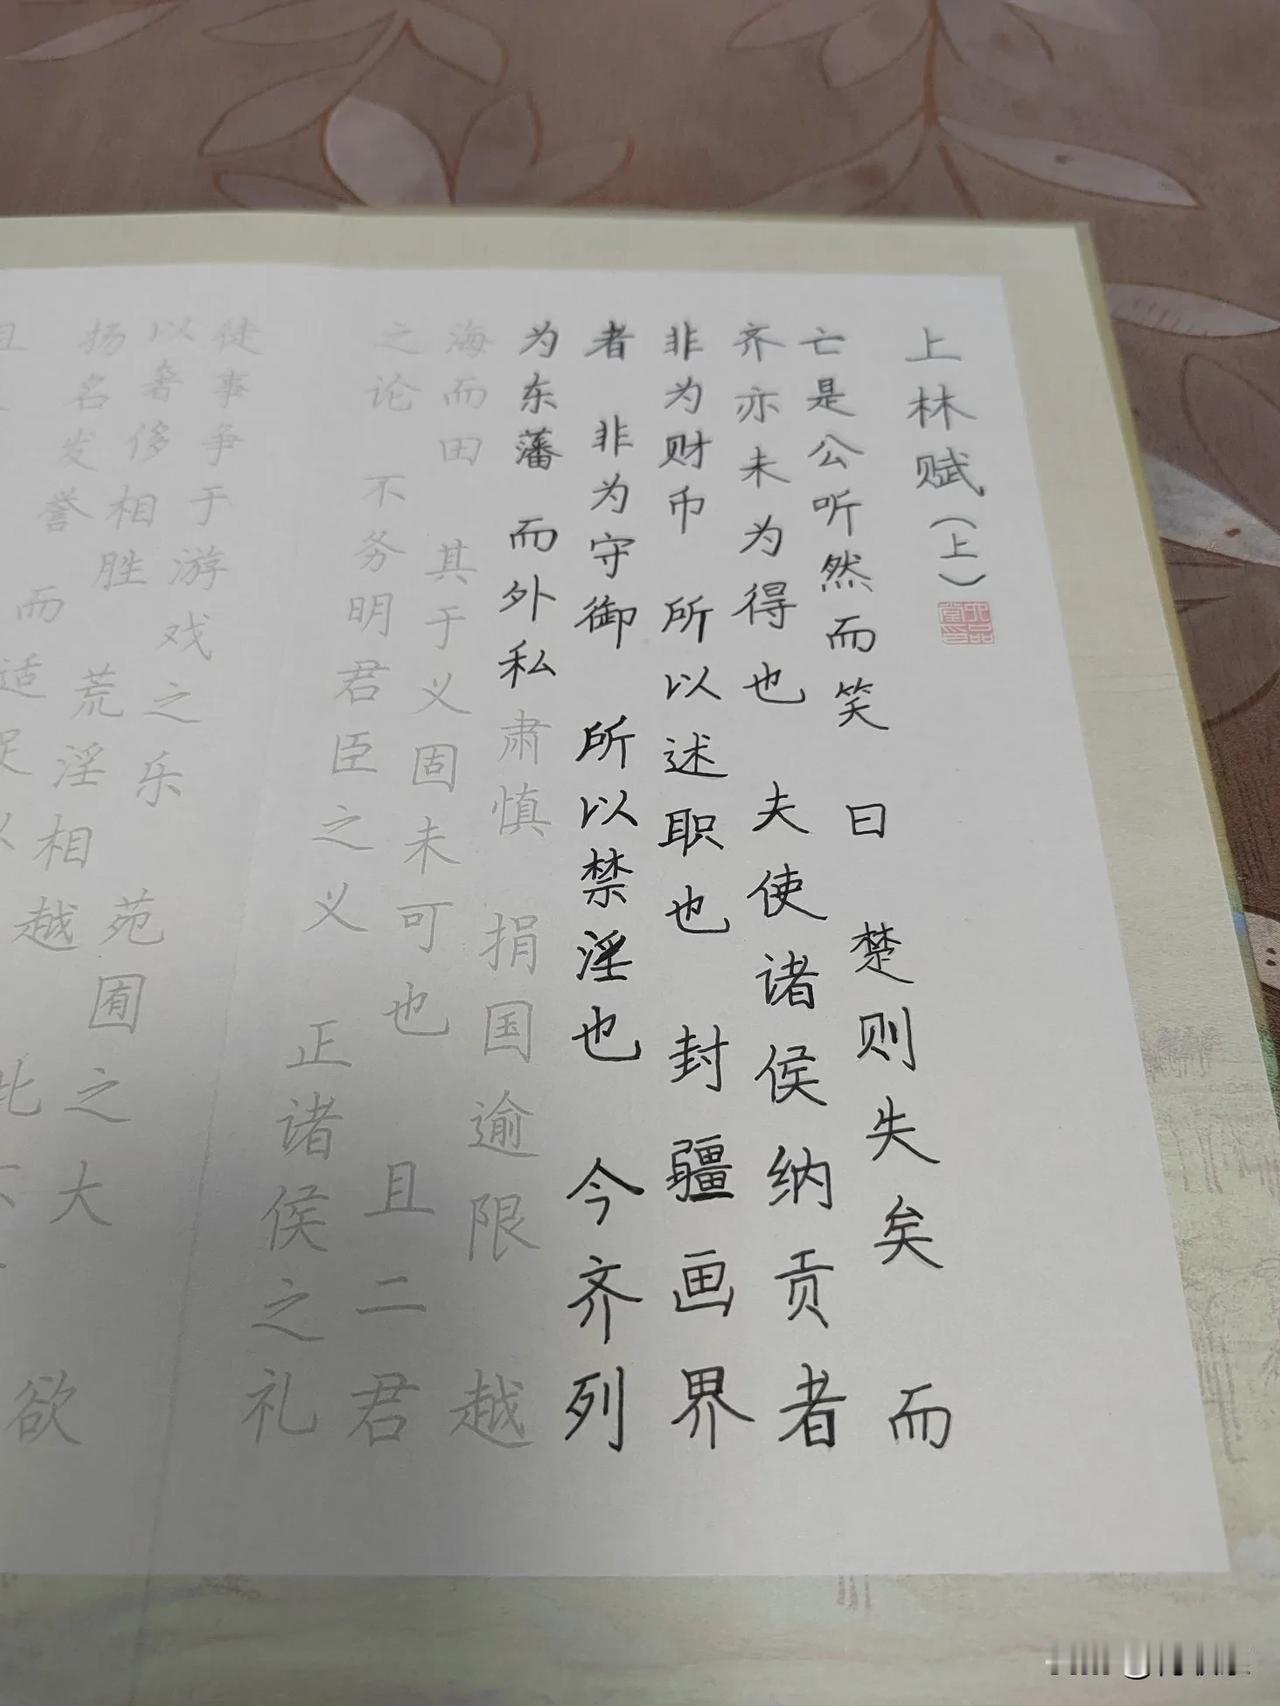 上林赋（上）
亡是公听然而笑 曰 楚则失矣 而
齐亦未为得也 夫使诸侯纳贡者
非为财币 所以述职也 封疆画界
者 非为守御 所以禁淫也 今齐列
为东藩 而外私肃慎 捐国逾限 越
海而田 其于义固未可也 且二君
之论 不务明君臣之义 正诸侯之礼
徒事争于游戏之乐 苑囿之大 欲
以奢侈相胜 荒淫相越 此不
扬名发誉 而适足以